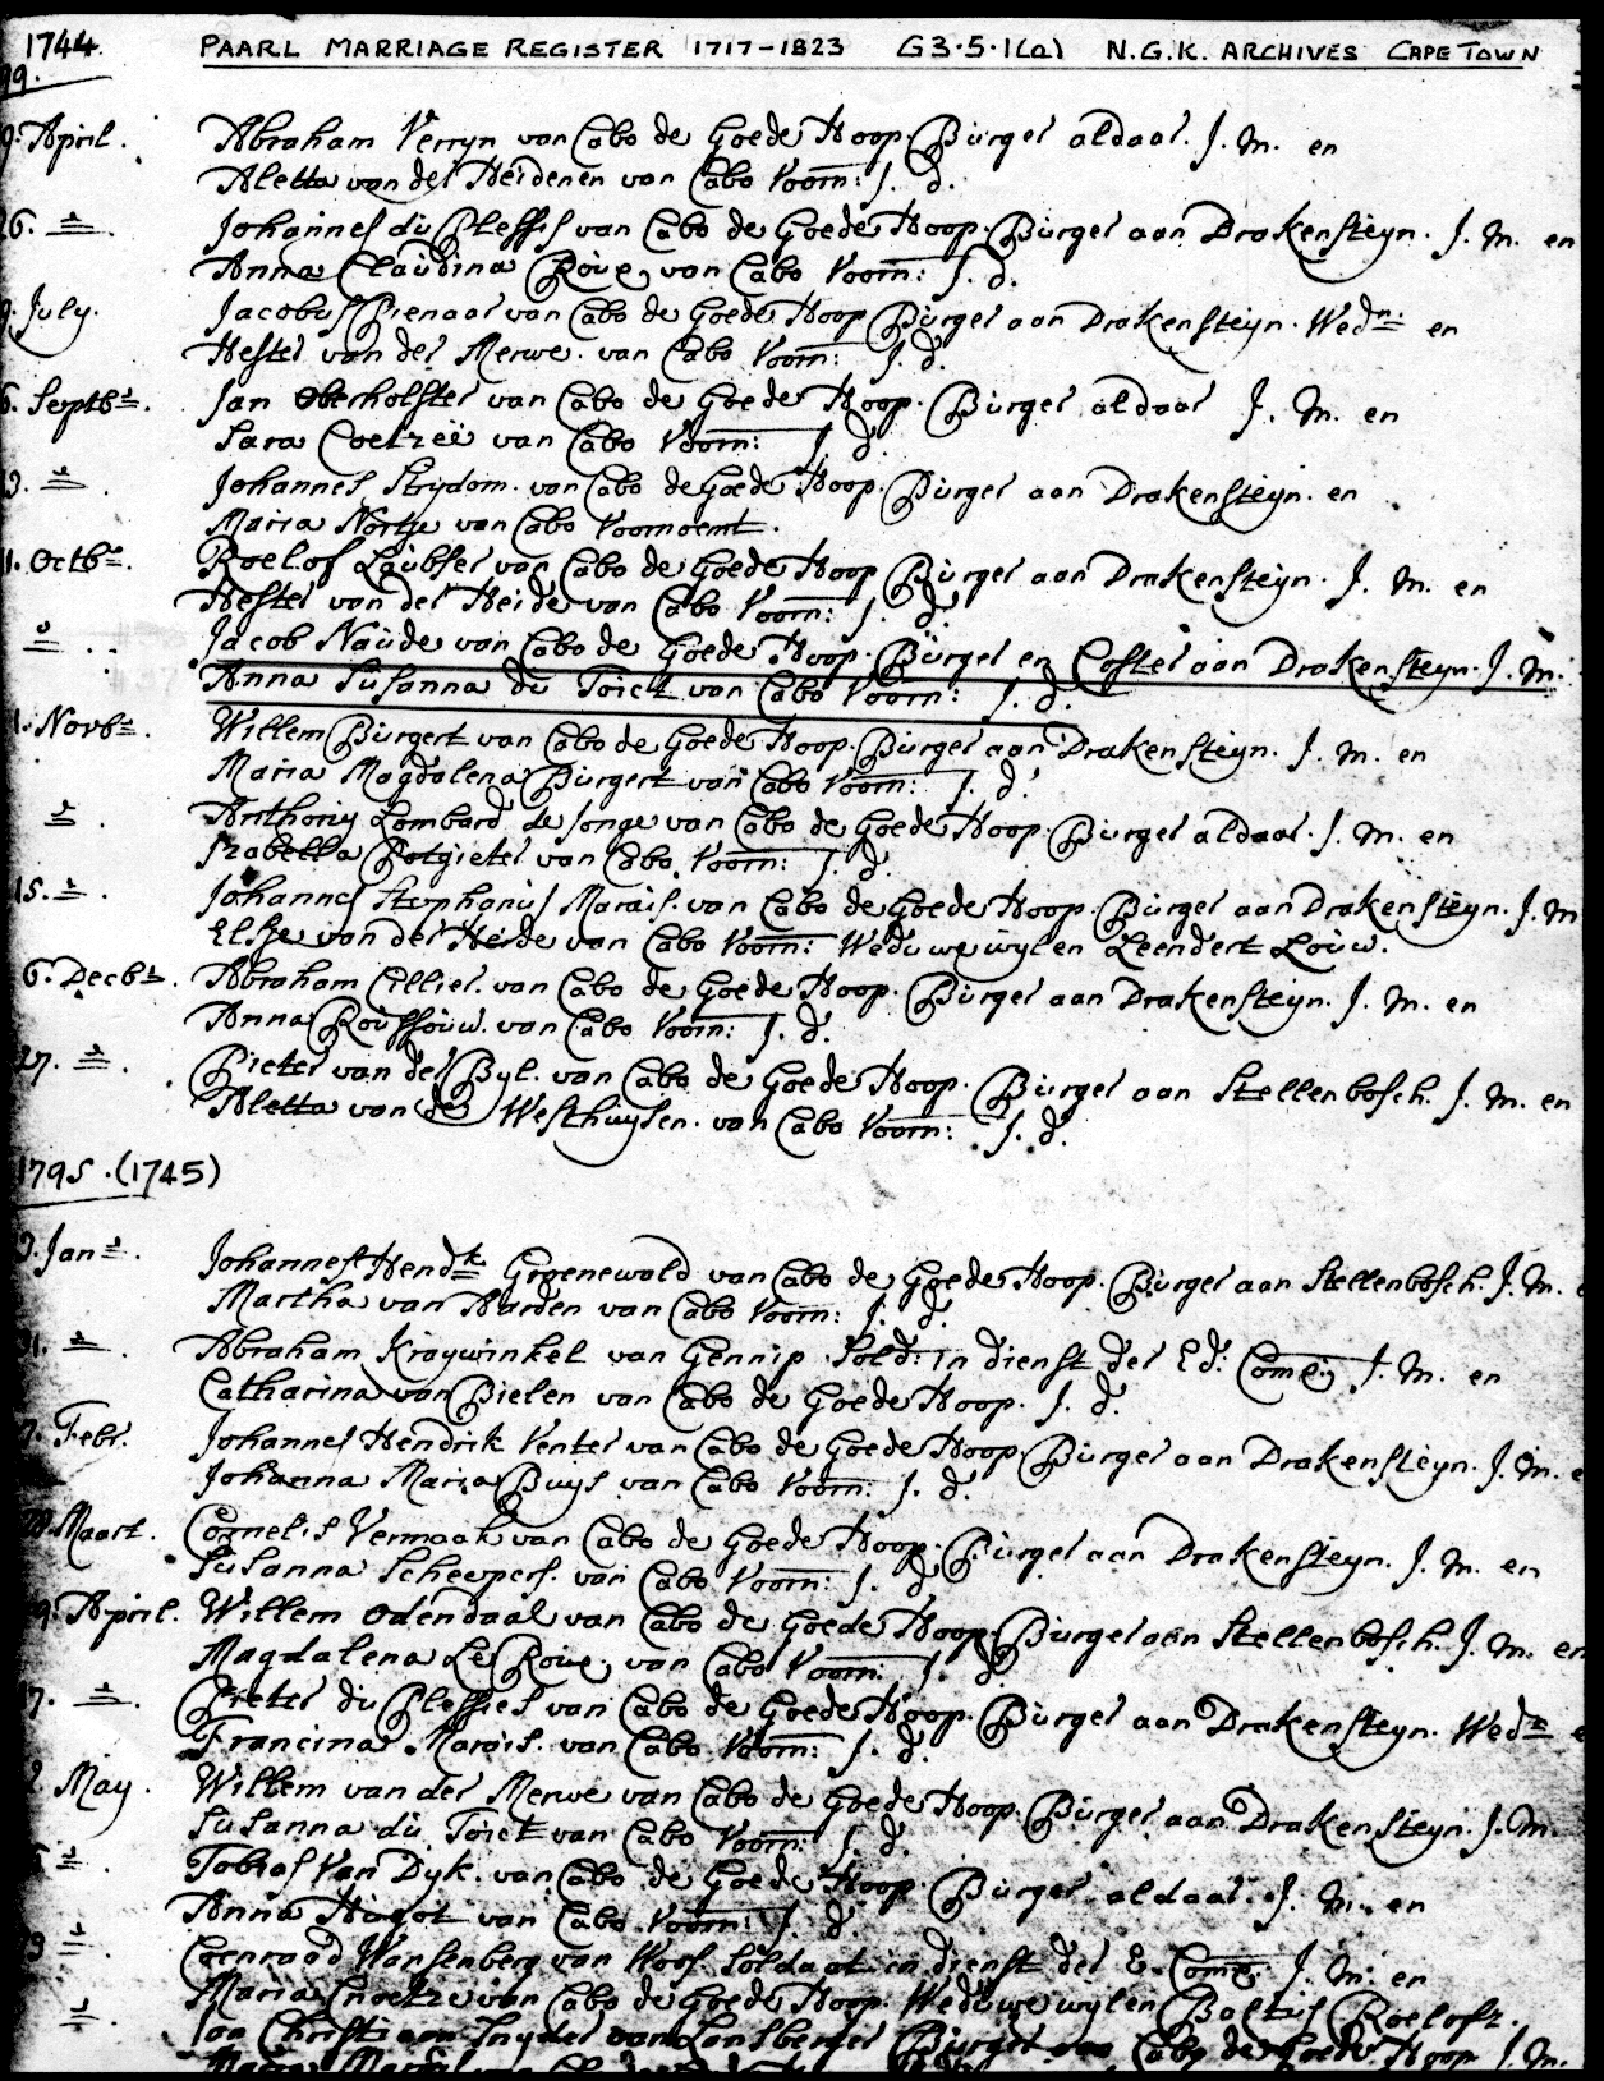 1744. PAARL MARRIAGE REGISTER 1717-1823 G3.5.1(a) N.G.K. ARCHIVES CAPE TOWN
99.
9. April. Abraham Verryn van Cabo de Goede Hoop. Burger aldaar. J. M. en
Aletta van der Heidenen van Cabo Voorn: J. d.
26. Johannes du Plessis van Cabo de Goede Hoop. Burger aan Drakensteyn. J. M. en
Anna Claudina Roux, van Cabo Voorn: J. d.
July. Jacobus Pienaar van Cabo de Goede Hoop Burger aan Drakensteyn. Wedn: en
Hester van der Merwe. van Cabo Voorn: J. d.
6. Septbr. Jan Oberholster van Cabo de Goede Hoop. Burger aldaar J. M. en
Sara Coetzeë van Cabo Voorn: J. d.
3. Johannes Strydom. van Cabo de Goede Hoop. Burger aan Drakensteyn. en
Maria Nortje van Cabo Voornoemt.
11. Octbr. Roelof Laubser van Cabo de Goede Hoop Burger aan Drakensteyn. J. M. en
Hester van der Heide van Cabo Voorn: J. d.
Jacob Naude van Cabo de Goede Hoop. Burger en Coster aan Drakensteyn. J. M.
Anna Susanna du Toict van Cabo Voorn: J. d.
1. Novbr. Willem Burgert van Cabo de Goede Hoop. Burger aan Drakensteyn. J. M. en
Maria Magdalena Burgert van Cabo Voorn: J. d.
Anthony Lombard de Jonge van Cabo de Goede Hoop. Burger aldaar. J. M. en
Izabella Potgieter van Cabo. Voorn: J. d.
15. Johannes Stephanus Marais. van Cabo de Goede Hoop. Burger aan Drakensteyn. J. M
Elsje van der Heide van Cabo Voorn: Weduwe wylen Leendert Louw.
6. Decbr. Abraham Cillier. van Cabo de Goede Hoop. Burger aan Drakensteyn. J. M. en
Anna Roussouw. van Cabo Voorn: J. d.
27. Pieter van der Byl. van Cabo de Goede Hoop. Burger aan Stellenbosch. J. M. en
Aletta van der Westhuysen. van Cabo Voorn: J. d.
1795. (1745)
Janr. Johannes Hendk Groenewald van Cabo de Goede Hoop. Burger aan Stellenbosch. J. M.
Martha van Aarden van Cabo Voorn: J. d.
31. Abraham Kraywinkel van Gennip Sold: in dienst der Ed: Comp: J. M. en
Catharina van Bielen van Cabo de Goede Hoop. J. d.
7. Febr. Johannes Hendrik Venter van Cabo de Goede Hoop Burger aan Drakensteyn. J. M. e
Johanna Maria Buys van Cabo Voorn: J. d.
Maart. Cornelis Vermaak van Cabo de Goede Hoop. Burger aan Drakensteyn. J. M. en
Susanna Scheepers. van Cabo Voorn: J. d
9. April. Willem Odendaal van Cabo de Goede Hoop. Burger aan Stellenbosch. J. M. en
Magdalena Le Roux, van Cabo Voorn: J. d.
7. Pieter du Plessies van Cabo de Goede Hoop. Burger aan Drakensteyn. Wedn e
Francina Marais. van Cabo. Voorn: J. d.
2. May. Willem van der Merwe van Cabo de Goede Hoop. Burger aan Drakensteyn. J. M.
Susanna du Toict van Cabo Voorn: J. d.
Tobias Van Dyk. van Cabo de Goede Hoop Burger aldaar. J. M. en
Anna Hugot van Cabo. Voorn: J. d.
Coenraad Wansenberg van Soldaat in dienst der E. Comp: J. M: en
Maria Cnoetze van Cabo de Goede Hoop. Weduwe wylen Boltus Roelofz.
Jan Christiaan Snyder van Lansberger Burger van Cabo de Goede Hoop J. M.